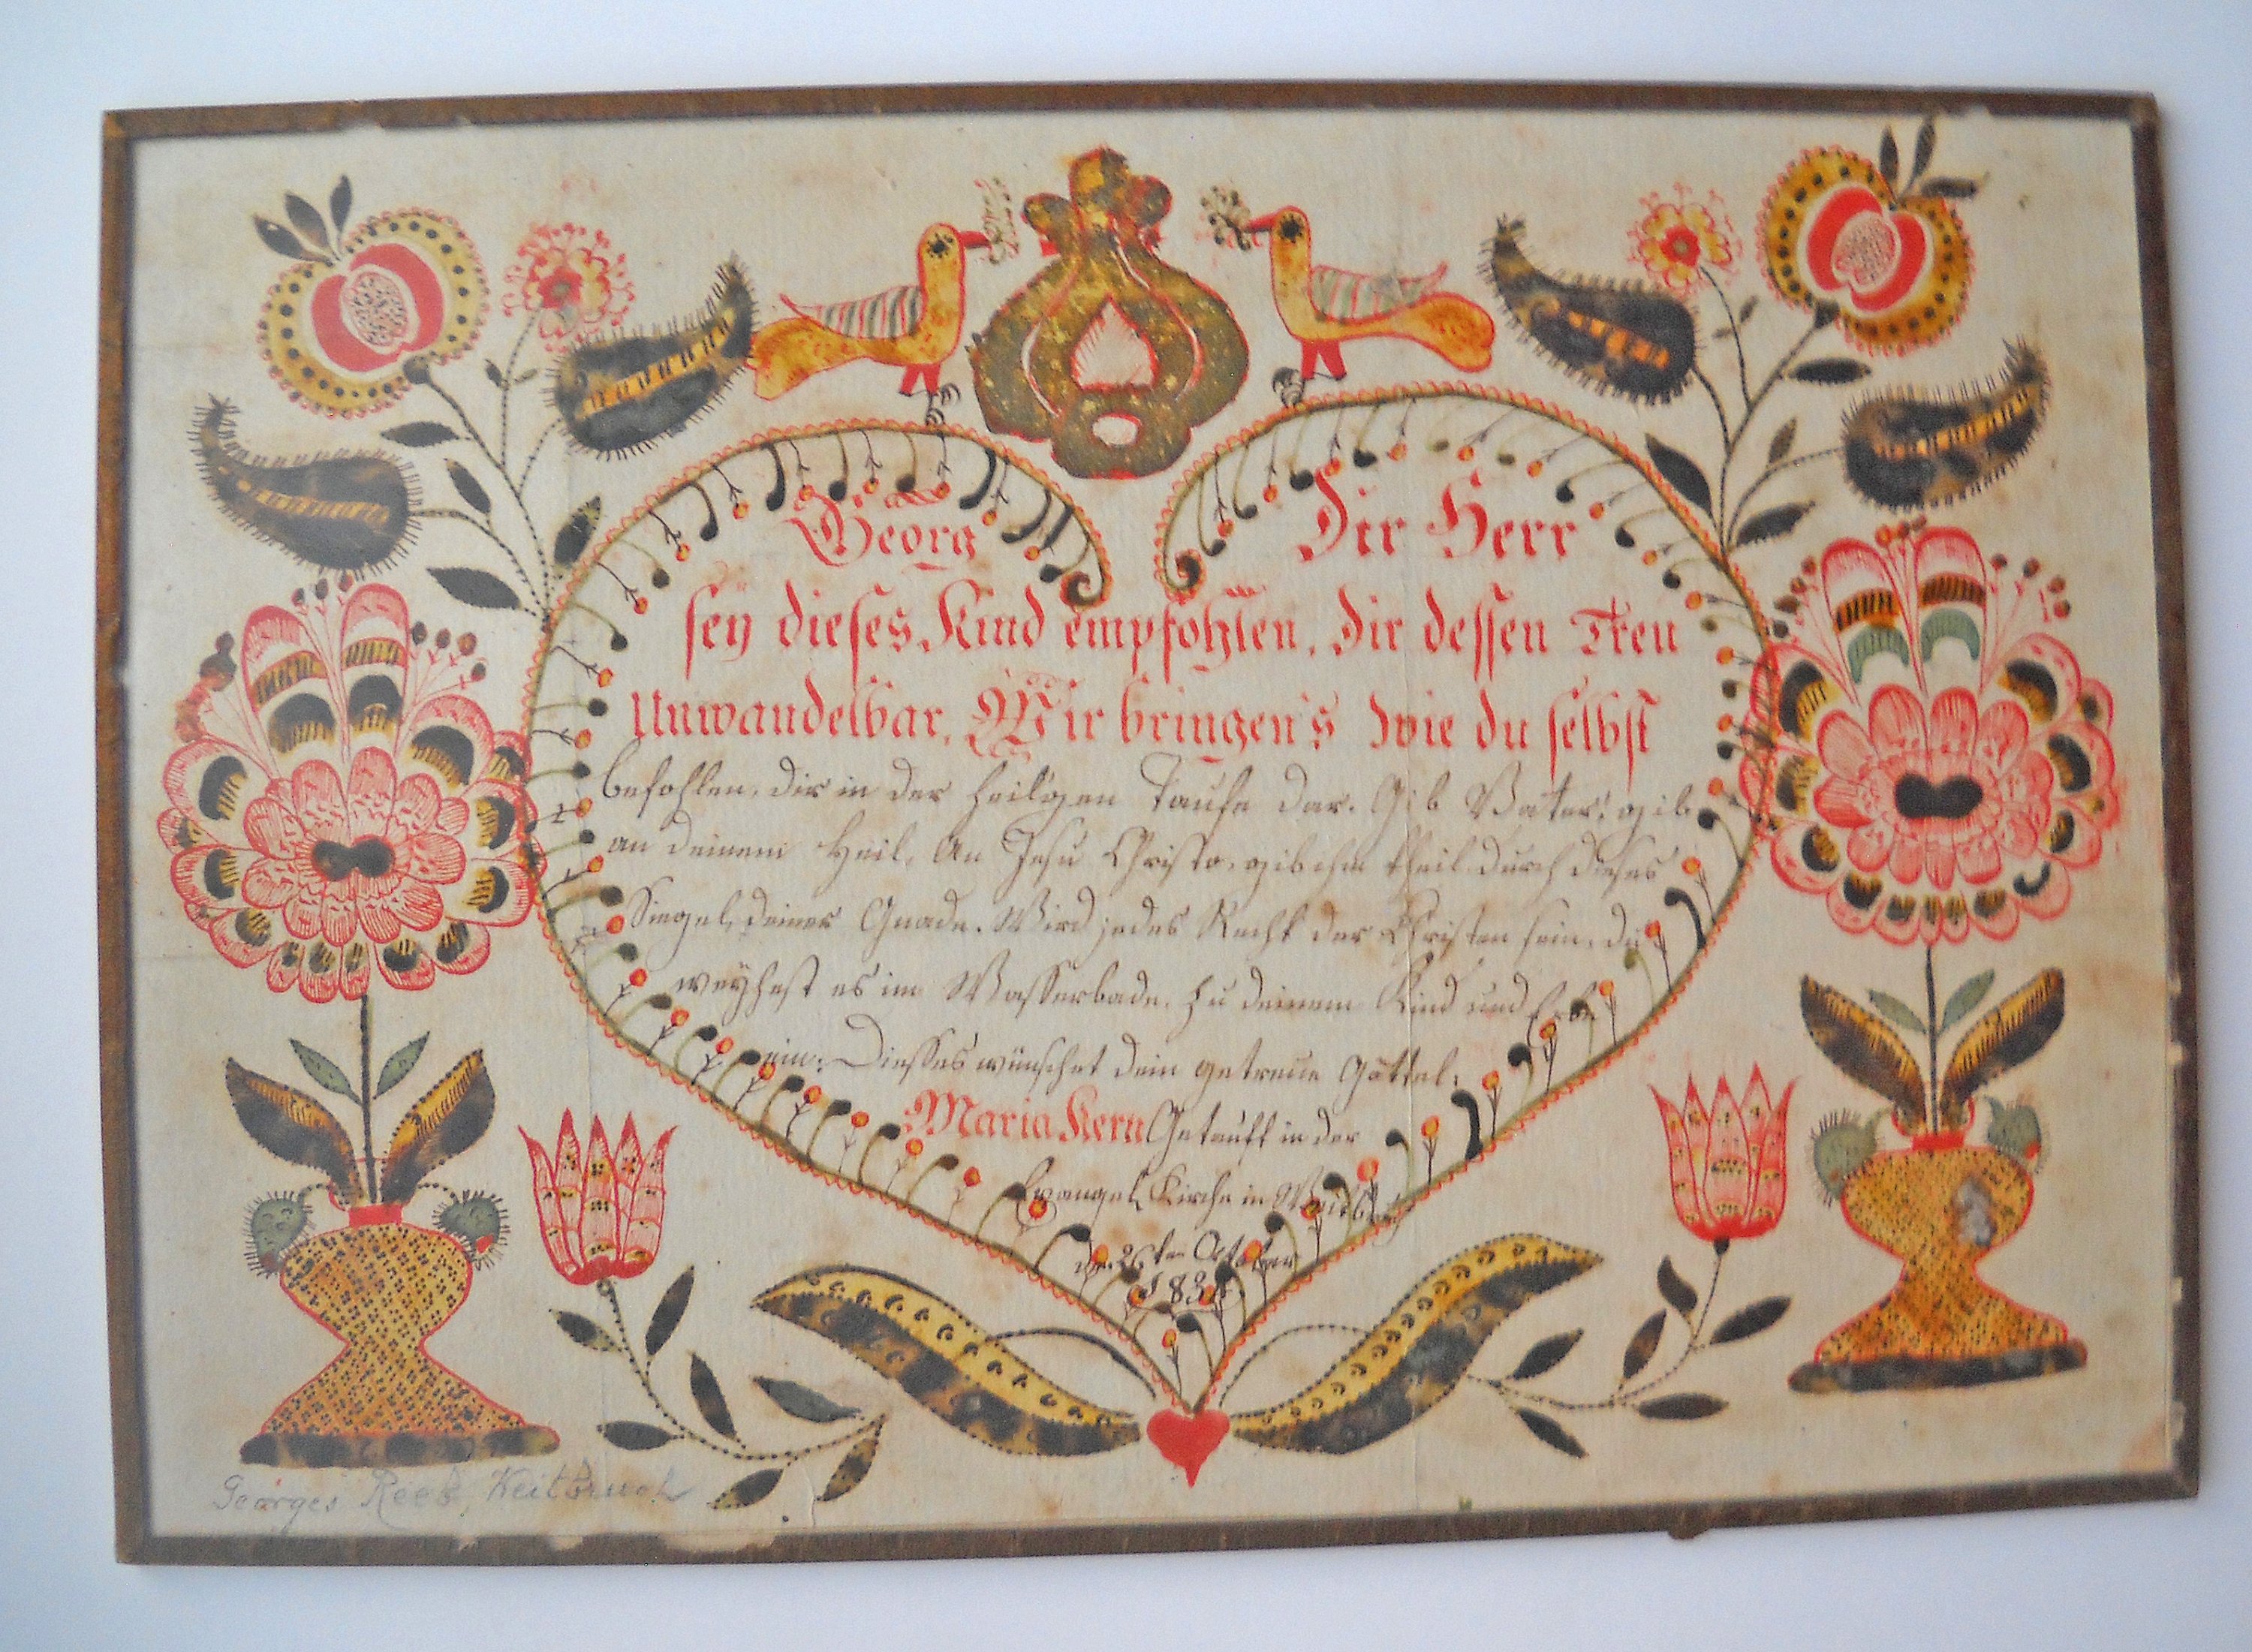 Georg Dir Herr
seÿ dieses Kind empfohlen, dir dessen Treu
Unwandelbar, Wir bringen's wie du selbst
befohlen, dir in der heilgen Taufe dar. Gib Vater! gib
an deinem Heil, An Jesu Christo, gib ihm theil durch dieses
Siegel deiner Gnade. Wird jedes Recht der Christen sein, du
weÿhest es im Wasserbade, zu deinem Kind und Erbe
ein: Diesses wünschet dein getreue Göttel:
Maria Kern Getauft in der
Evangel Kirche in Weitbruch
den 26ten October
Georges Reeb, Weitbruch